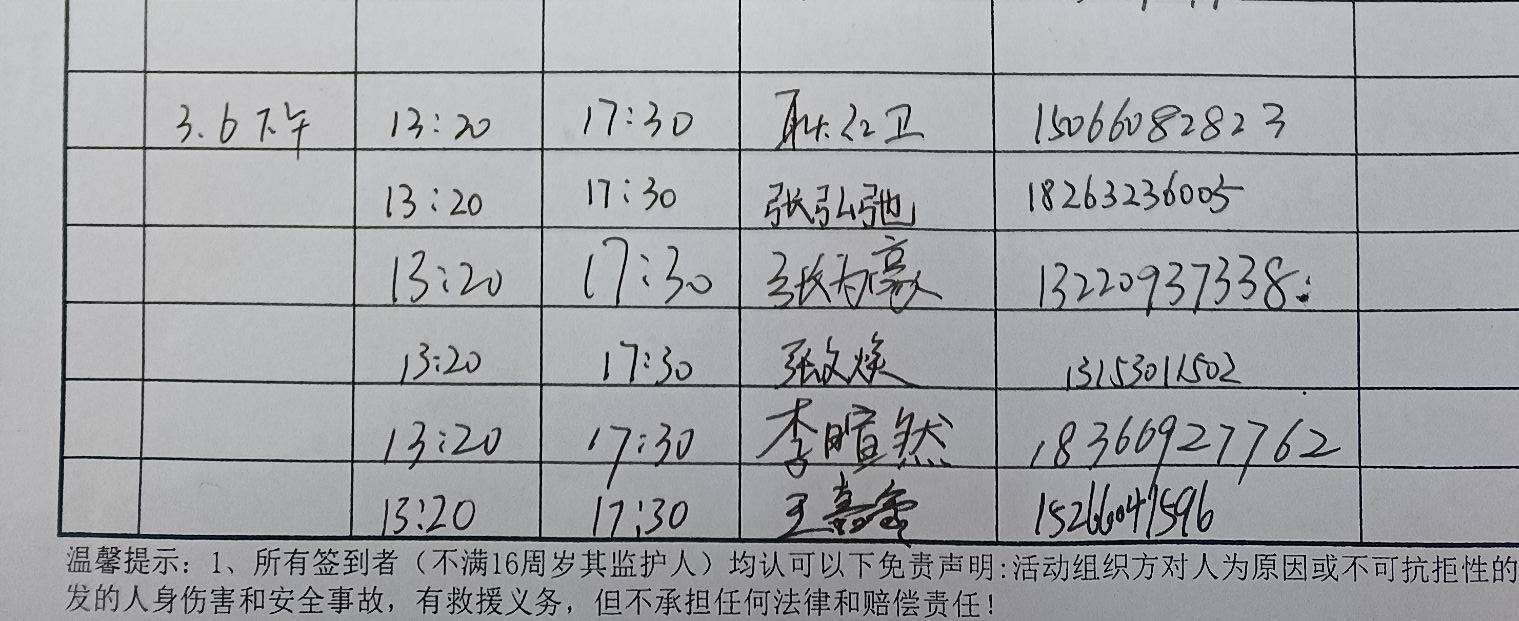 3.6下午 13:20 17:30 耿红卫 15066082823
13:20 17:30 张弘弛 18263236005
13:20 17:30 张为豪 13220937338
13:20 17:30 张文焕 13153011502
13:20 17:30 李暄然 18366927762
13:20 17:30 15266047596
温馨提示：1、所有签到者（不满16周岁其监护人）均认可以下免责声明:活动组织方对人为原因或不可抗拒性的
发的人身伤害和安全事故，有救援义务，但不承担任何法律和赔偿责任！